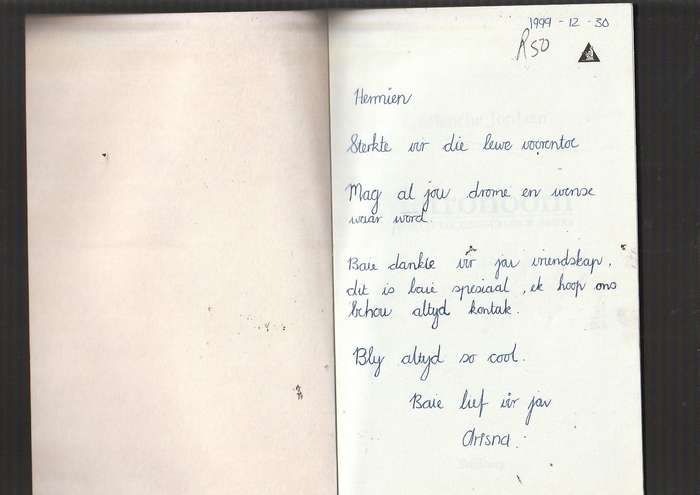 1999-12-30
R50
Hermien
Sterkte vir die lewe vorentoe
Mag al jou drome en wense
waar word.
Baie dankie vir jou vriendskap,
dit is baie spesiaal, ek hoop ons
behou altyd kontak.
Bly altyd so cool.
Baie lief vir jou
Arisna.